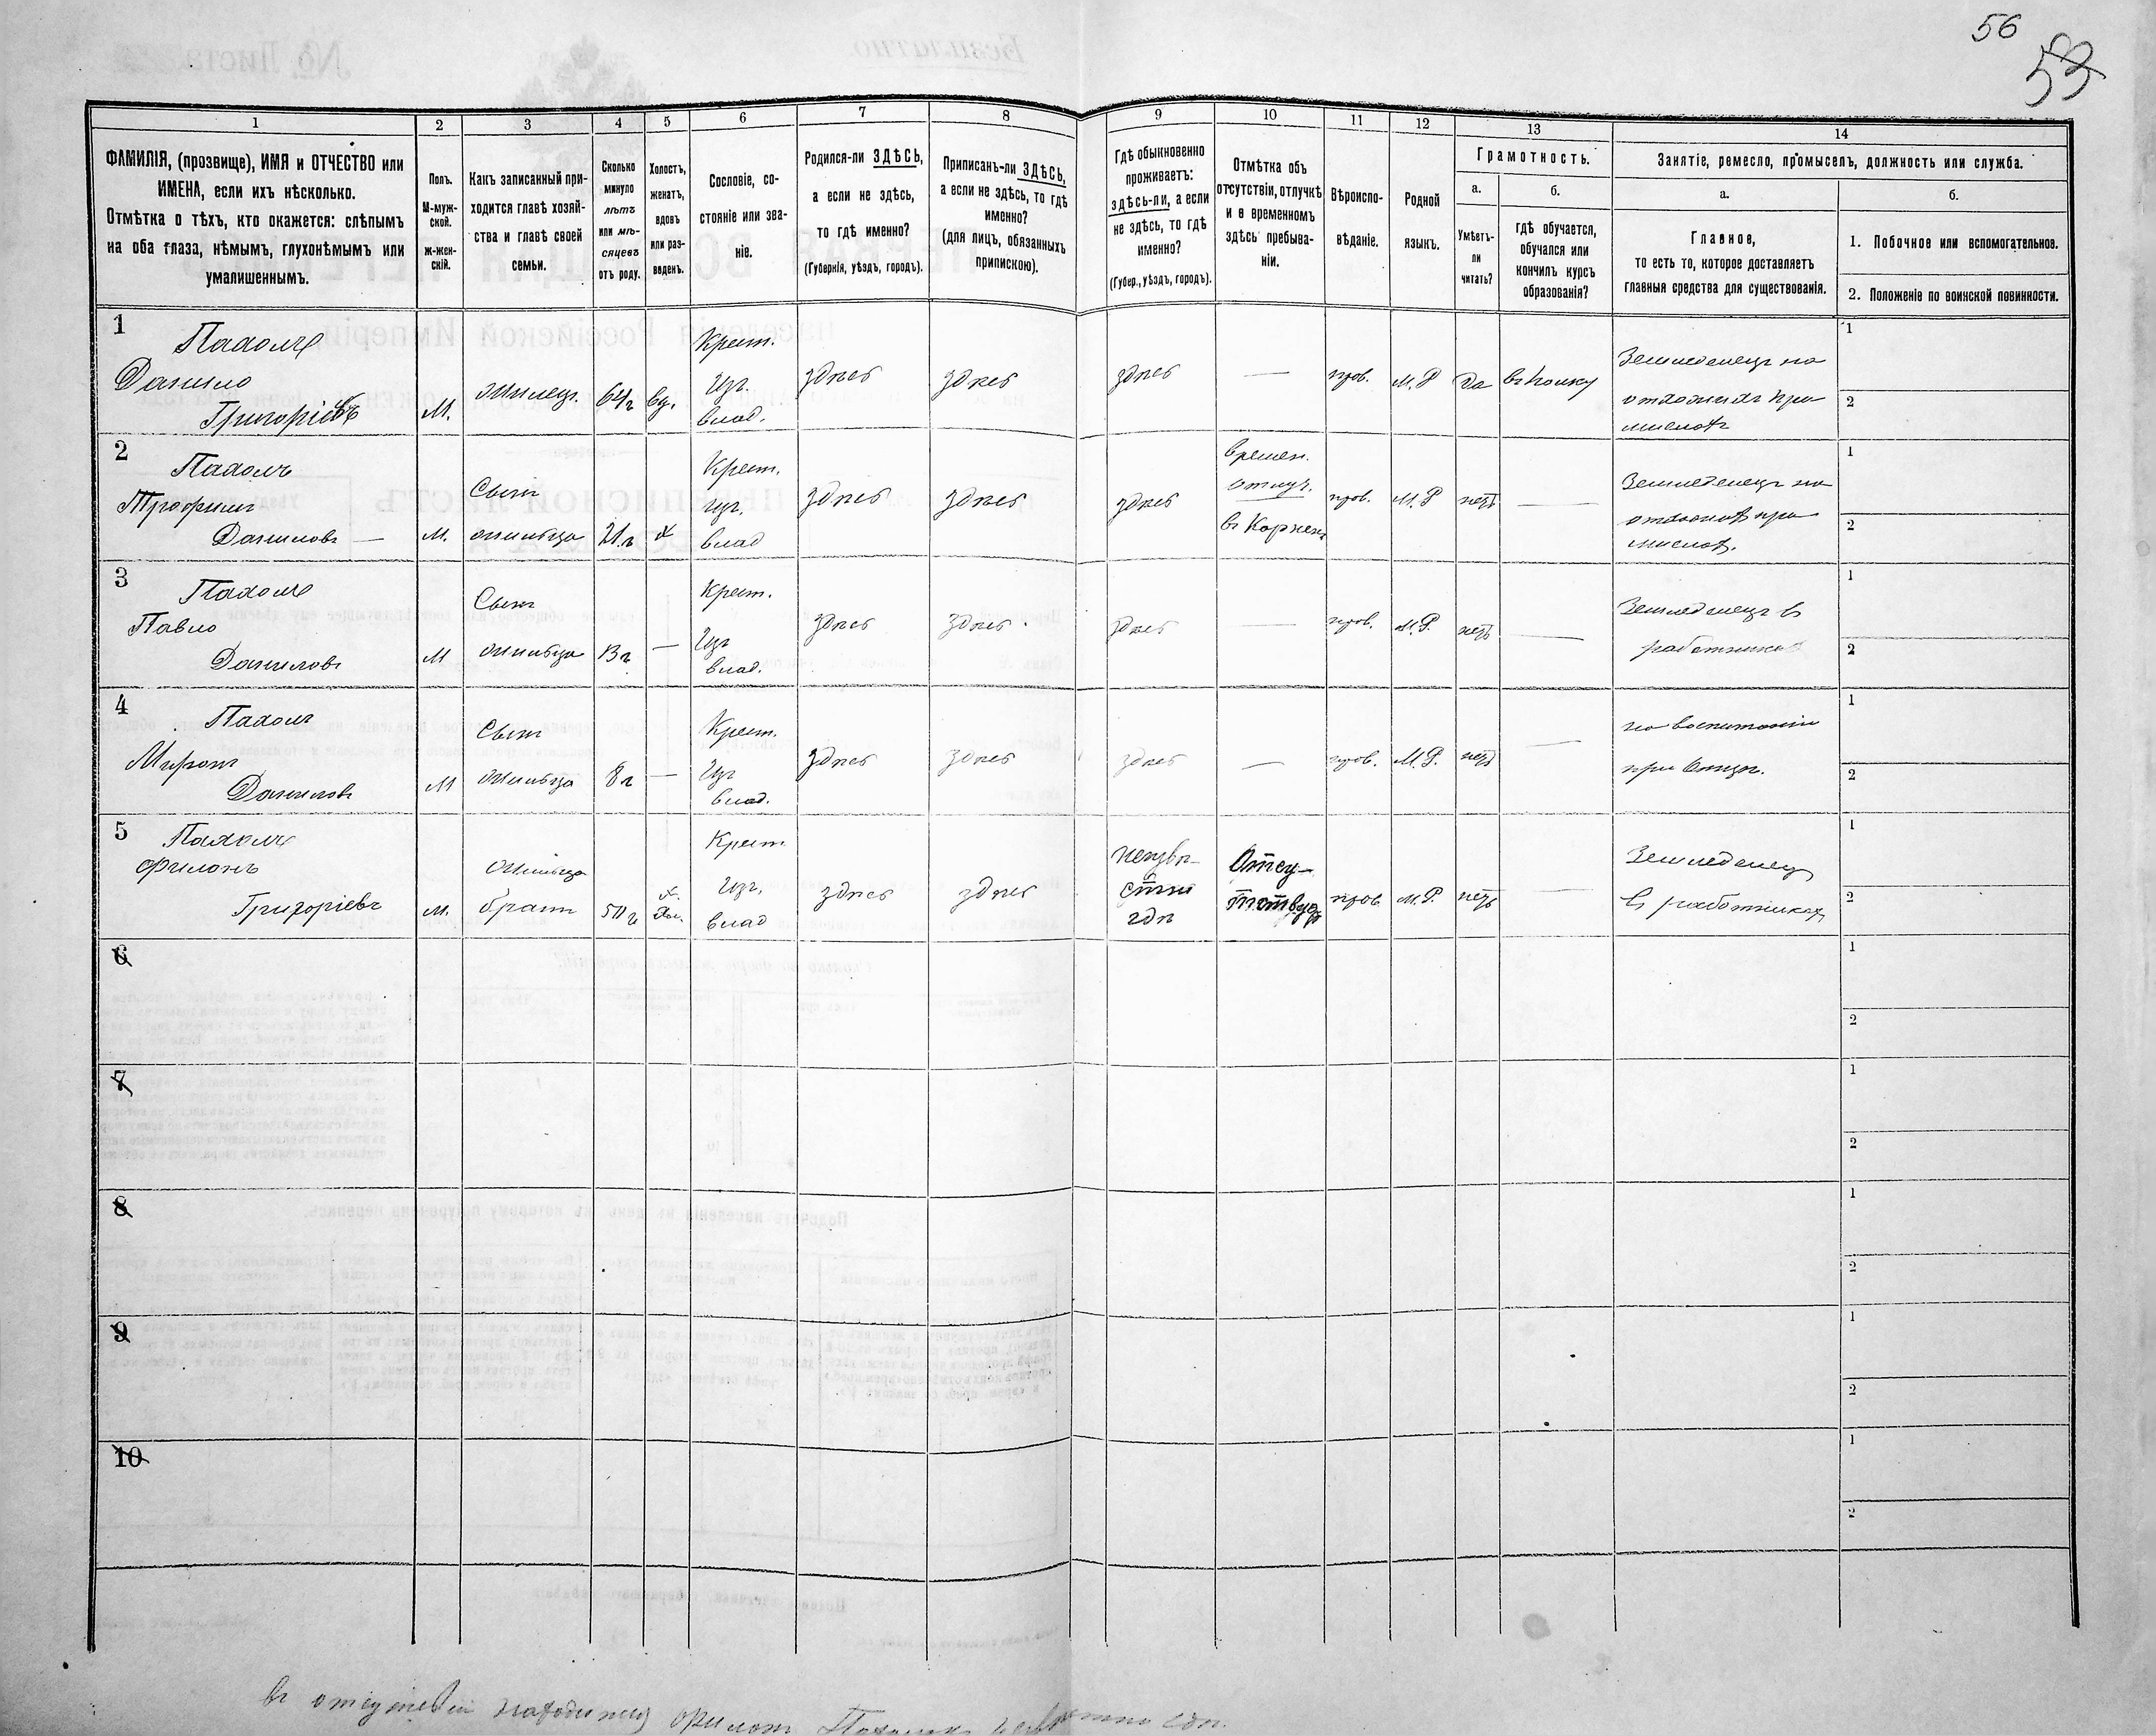 56
53
1
2
3
4
5
6
7
8
9
10
11
12
13
14
ФАМИЛІЯ, (прозвище), ИМЯ и ОТЧЕСТВО или
ИМЕНА, если ихъ нѣсколько.
Отмѣтка о тѣхъ, кто окажется: слѣпымъ
на оба глаза, нѣмымъ, глухонѣмымъ или
умалишеннымъ.
Полъ.
М-муж-
ской.
Ж-жен-
скій.
Какъ записанный при-
ходится главѣ хозяй-
ства и главѣ своей
семьи.
Сколько
минуло
лѣтъ
или мѣ-
сяцевъ
отъ роду.
Холостъ,
женатъ,
вдовъ
или раз-
веденъ.
Сословіе, со-
стояніе или зва-
ніе.
Родился-ли ЗДѢСЬ,
а если не здѣсь,
то гдѣ именно?
(Губернія, уѣздъ, городъ).
Приписанъ-ли ЗДѢСЬ,
а если не здѣсь, то гдѣ
именно?
(для лицъ, обязанныхъ
припискою).
Гдѣ обыкновенно
проживаетъ:
здѣсь-ли, а если
не здѣсь, то гдѣ
именно?
(Губер., уѣздъ, городъ).
Отмѣтка объ
отсутствіи, отлучкѣ
и в временномъ
здѣсь пребыва-
ніи.
Вѣроиспо-
вѣданіе.
Родной
языкъ.
Грамотность.
а.
Умѣетъ-
ли
читать?
б.
гдѣ обучается,
обучался или
кончилъ курсъ
образованія?
Занятіе, ремесло, промыселъ, должность или служба.
а.
Главное,
то есть то, которое доставляетъ
главныя средства для существованія.
б.
1. Побочное или вспомогательное.
2. Положеніе по воинской повинности.
1
Данило
Григоріевъ
М.
жилец.
64 г
вд.
Крест.
из.
влад.
здѣсь
здѣсь
здѣсь
—
прав.
М. Р
да
Земледелецъ на
1
2
2
Трофимъ
Даниловъ —
М.
Сынъ
жильца
21 г
х
Крест.
из.
влад
здѣсь
здѣсь
здѣсь
времен.
отлуч.
прав.
М. Р
нетъ
—
Земледелецъ на
1
2
3
Павло
Даниловъ
М
Сынъ
жильца
13 г
—
Крест.
Из
влад.
здѣсь
здѣсь.
здѣсь
—
прав.
М. Р.
нетъ
—
Земледелецъ в
работника
1
2
4
Миронъ
Даниловъ
М
Сынъ
жильца
8 г
—
Крест.
Из
влад.
здѣсь
здѣсь
здѣсь
—
прав.
М. Р.
нетъ
—
на воспитаніи
при Отцѣ.
1
2
5
Филонъ
Григоріевъ
М.
жильца
братъ
50 г
х.
Хол.
Крест
из.
влад
здѣсь
здѣсь
неизвѣ-
стно
гдѣ
Отсу-
тствуетъ
прав
М. Р.
нетъ
—
Земледелец
в работникахъ
1
2
6
1
2
7
1
2
8
1
2
9
1
2
10
1
2
въ отсутствіи находится Филонъ